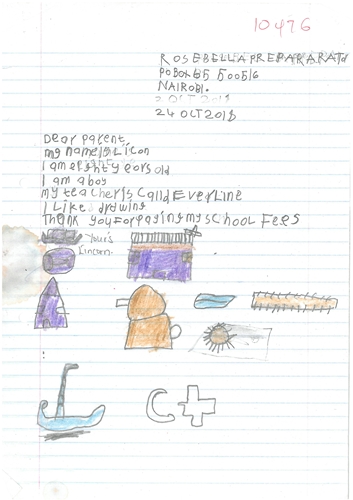 10476
ROSEBELLA PREPARARATO
PO BOX 85 500516
NAIROBI.
2 OCT 2018
24 OCT 2018
Dear parent
my name is Licon
I am eighty years old
I am a boy
my teacher is Calld EverLine
I Like drawing
Thank you For paying my school Fees
Your's
Lincon.